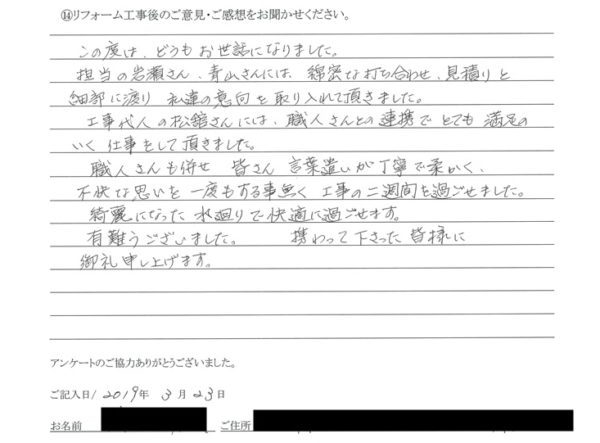 ⑭リフォーム工事後のご意見・ご感想をお聞かせください。
この度は、どうもお世話になりました。
担当の岩瀬さん、青山さんには、綿密な打ち合わせ、見積りと
細部に渡り 私達の意向を取り入れて頂きました。
工事代人の松舘さんには、職人さんとの連携で とても 満足の
いく 仕事をして頂きました。
職人さんも併せ 皆さん 言葉遣いが丁寧で柔かく、
不快な思いを 一度もする事無く 工事の二週間を過ごせました。
綺麗になった 水廻りで快適に過ごせます。
有難うございました。 携わって下さった皆様に
御礼申し上げます。
アンケートのご協力ありがとうございました。
ご記入日/2019年 3月23日
お名前 ご住所